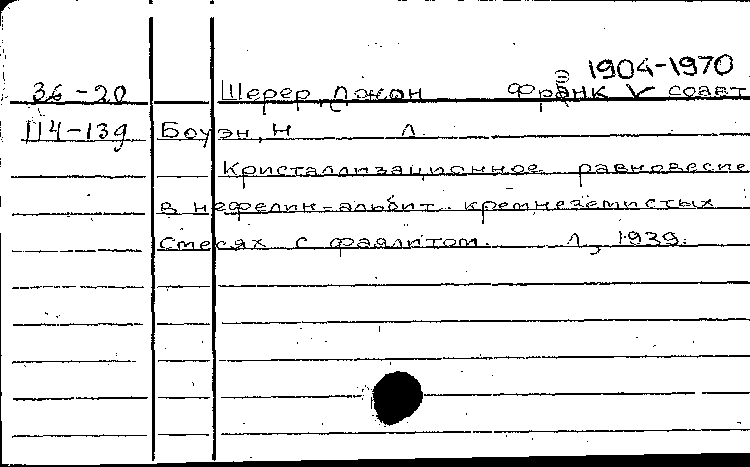 1904-1970
36-20 Шерер, Джон Франк V соавт
114-139 Боуэн, Н Л.
Кристаллизационное равновесие
в нефелин-альбит. кремнеземистых
смесях с фаялитом. Л, 1939.